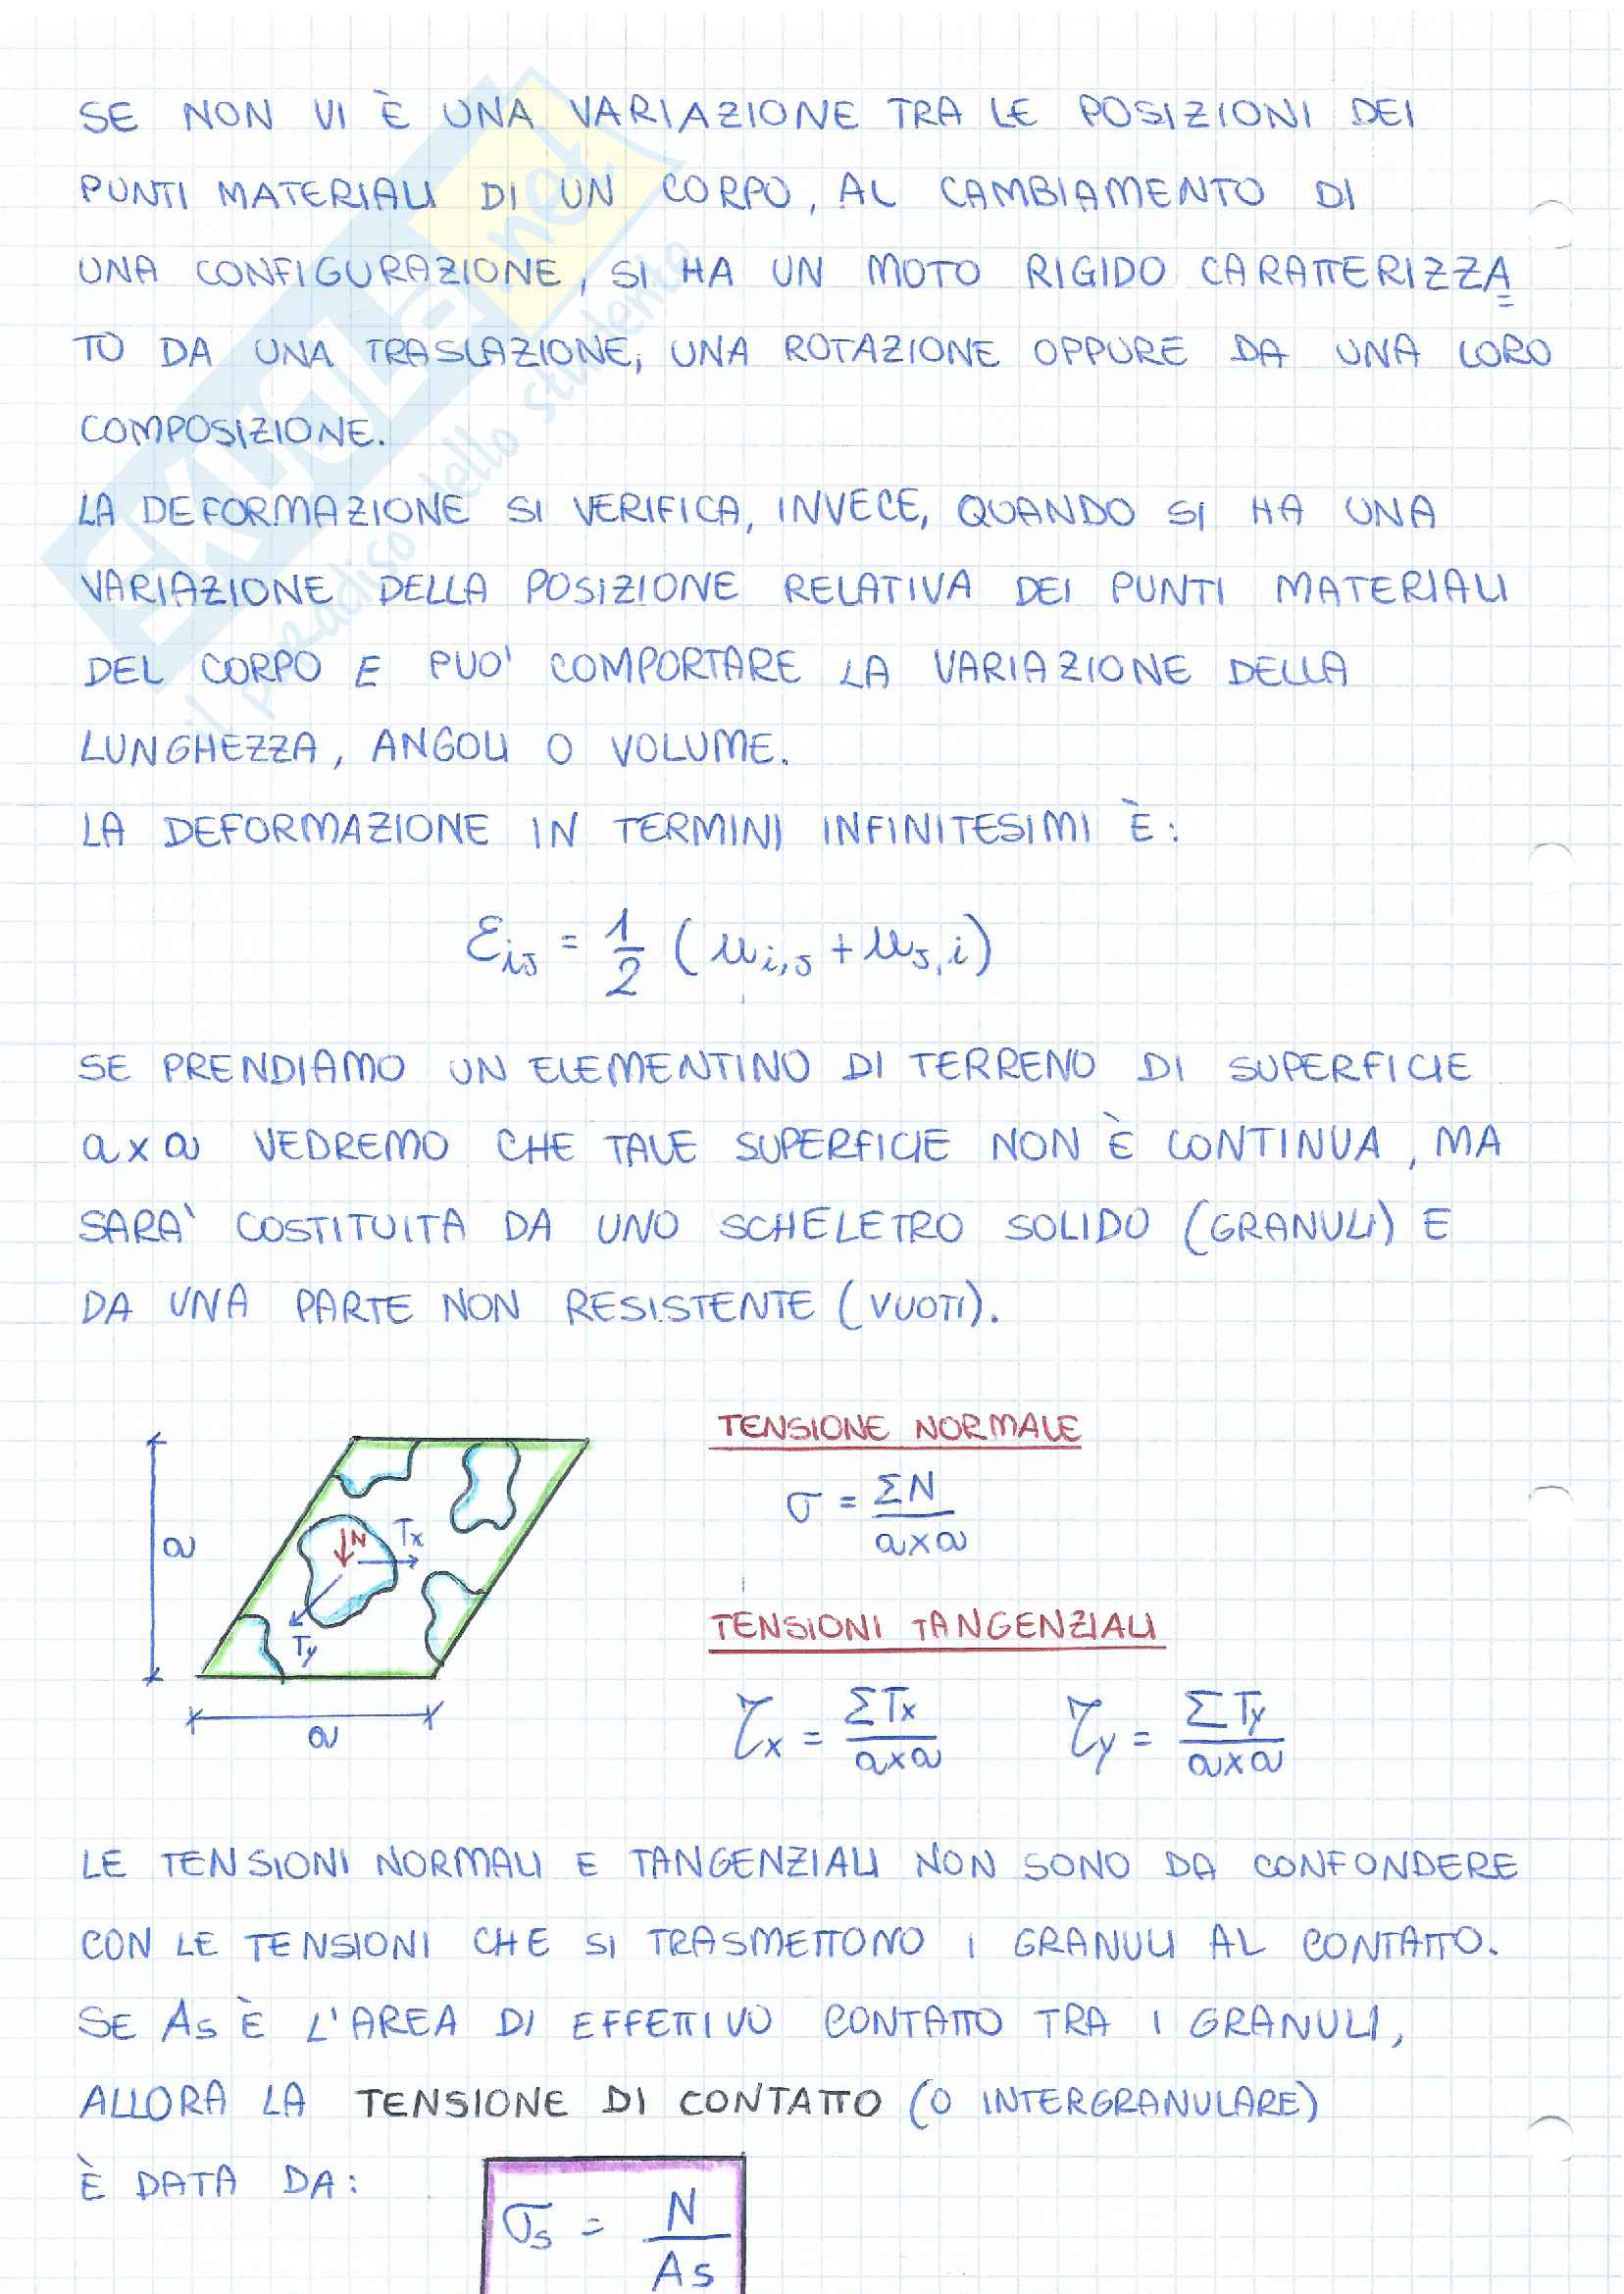 SE NON VI È UNA VARIAZIONE TRA LE POSIZIONI DEI
PUNTI MATERIALI DI UN CORPO, AL CAMBIAMENTO DI
UNA CONFIGURAZIONE, SI HA UN MOTO RIGIDO CARATTERIZZA=
TO DA UNA TRASLAZIONE, UNA ROTAZIONE OPPURE DA UNA LORO
COMPOSIZIONE.
LA DEFORMAZIONE SI VERIFICA, INVECE, QUANDO SI HA UNA
VARIAZIONE DELLA POSIZIONE RELATIVA DEI PUNTI MATERIALI
DEL CORPO E PUO' COMPORTARE LA VARIAZIONE DELLA
LUNGHEZZA, ANGOLI O VOLUME.
LA DEFORMAZIONE IN TERMINI INFINITESIMI È:
εij = 1/2 (ui,j + uj,i)
SE PRENDIAMO UN ELEMENTINO DI TERRENO DI SUPERFICIE
a x a VEDREMO CHE TALE SUPERFICIE NON È CONTINUA, MA
SARA' COSTITUITA DA UNO SCHELETRO SOLIDO (GRANULI) E
DA UNA PARTE NON RESISTENTE (VUOTI).
TENSIONE NORMALE
σ = ΣN / a x a
a
N
Tx
Ty
a
TENSIONI TANGENZIALI
τx = ΣTx / a x a τy = ΣTy / a x a
LE TENSIONI NORMALI E TANGENZIALI NON SONO DA CONFONDERE
CON LE TENSIONI CHE SI TRASMETTONO I GRANULI AL CONTATTO.
SE As È L'AREA DI EFFETTIVO CONTATTO TRA I GRANULI,
ALLORA LA TENSIONE DI CONTATTO (O INTERGRANULARE)
È DATA DA:
σs = N / As
SKUOLA.net
il paradiso dello studente